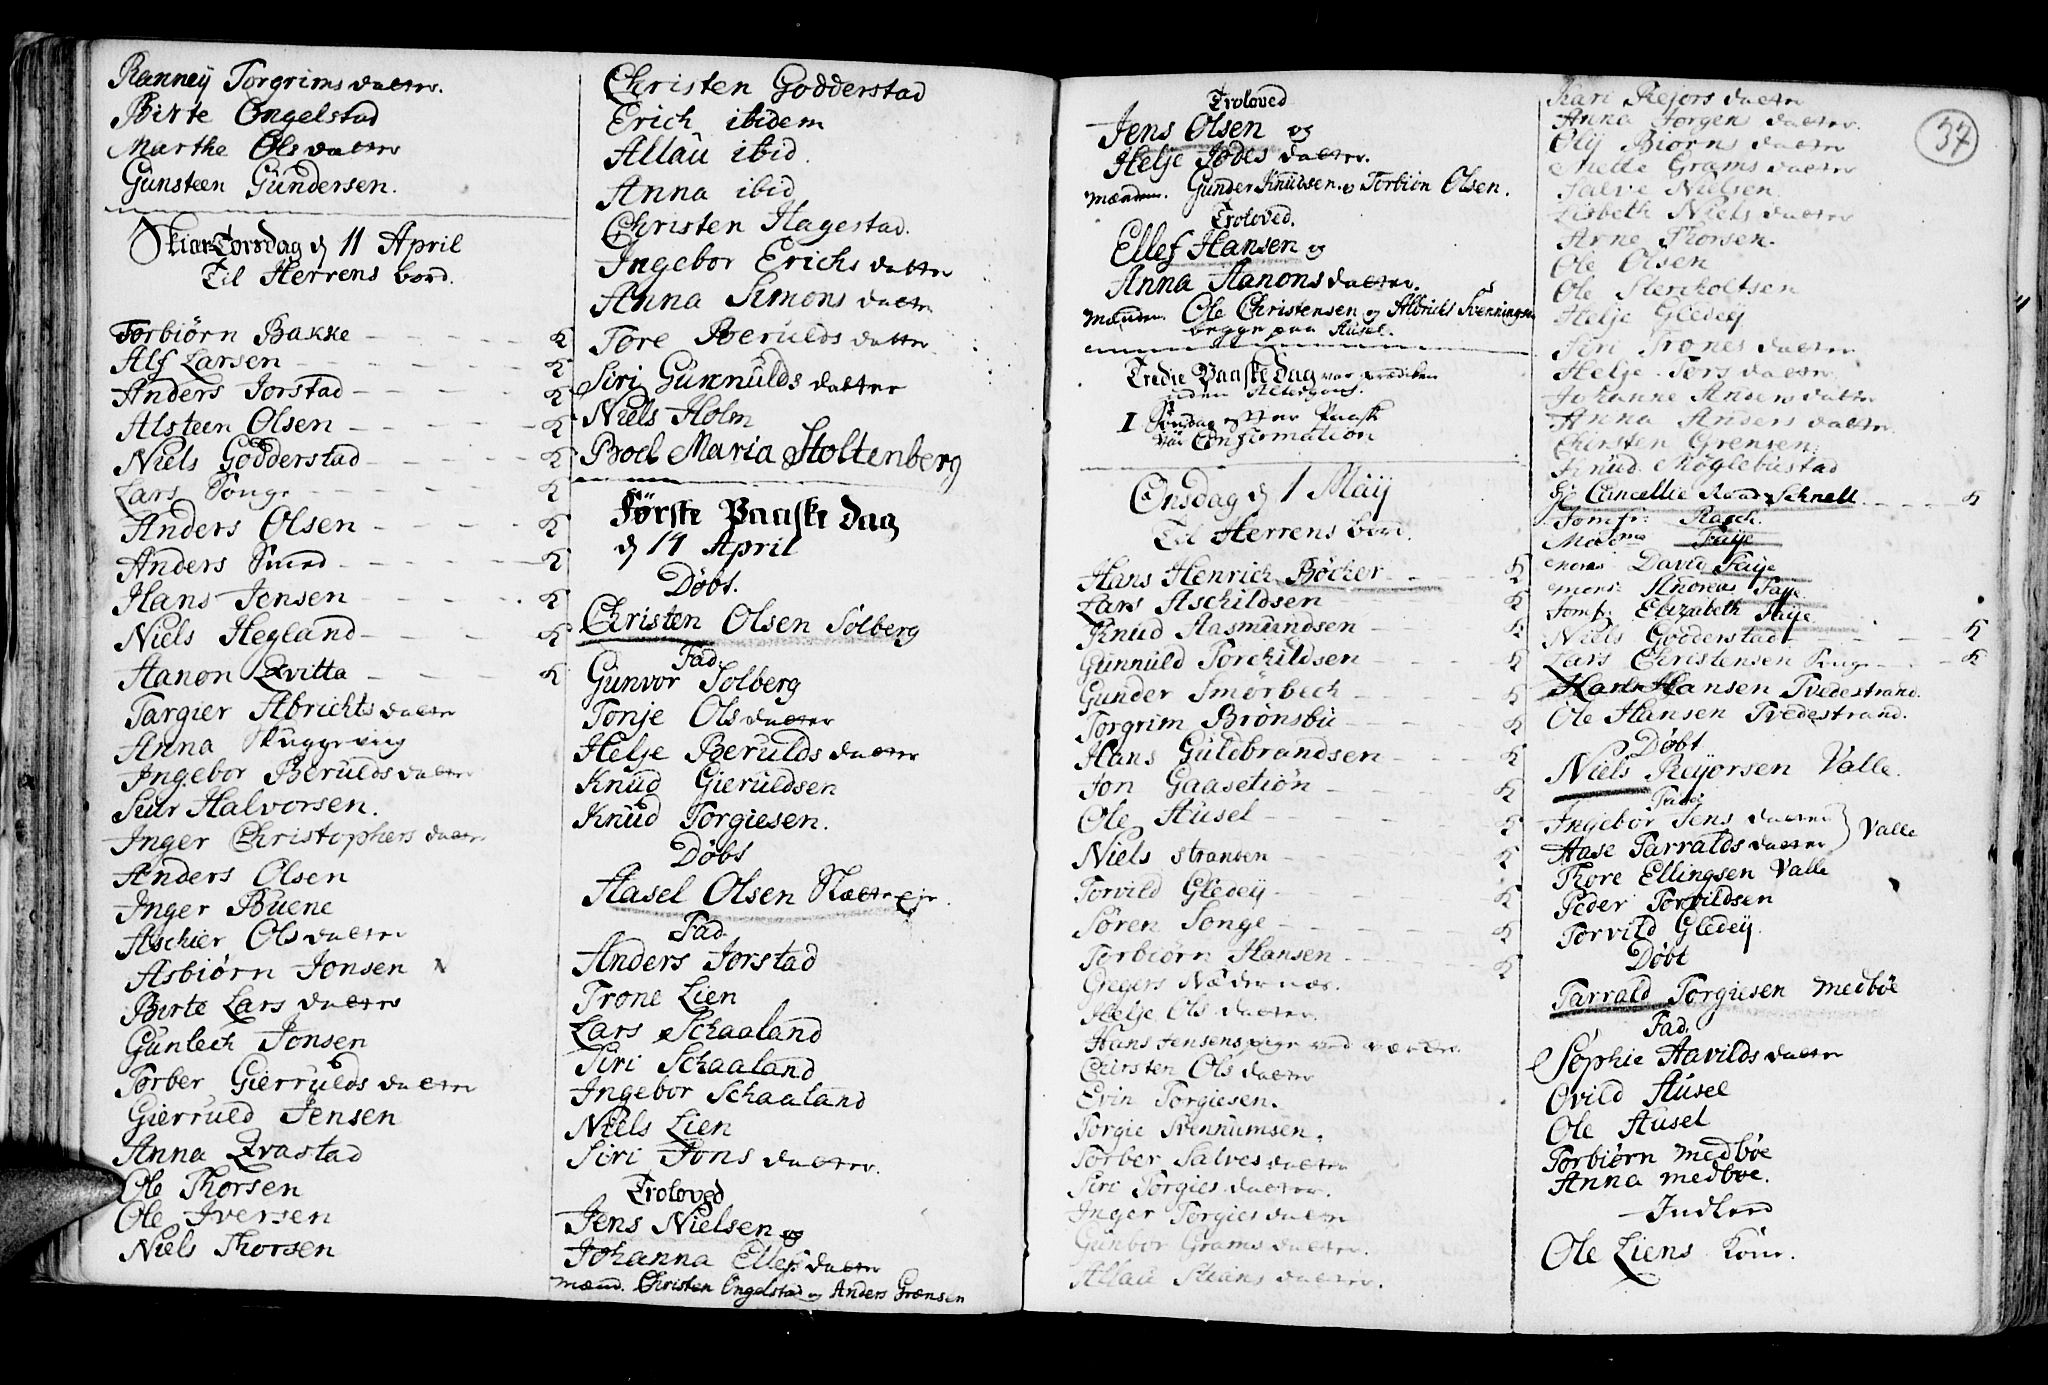 Ranneÿ Torgrims datter.
Birte Ongelstad
Marthe Ols datter
Gunsteen Gundersen.
Skiær Torsdag d 11 April
Til Herrens bord.
Torbiørn Bakke K
Alf Larsen K
Anders Jorstad K
Alsteen Olsen K
Niels Godderstad K
Lars Songe K
Anders Olsen K
Anders K
Hans Jensen K
Niels Hegland K
Aanon Qvitta K
Targier Albrichts datter
Anna Skuggevig
Ingebor Berulds datter
Siur Halvorsen.
Inger Christophers datter
Anders Olsen
Inger Buene
Aschier Ols datter
Asbiørn Jonsen
Birte Lars datter
Gunlech Jonsen
Torber Gierrulds datter
Gierruld Jensen
Anna Qvastad
Ole Thorsen
Ole Iversen
Niels Thorsen
Christen Godderstad
Erich ibidem
Allau ibid.
Anna ibid
Christen Hagestad.
Ingebor Erichs datter
Anna Simons datter
Tore Berulds datter
Siri Gunnulds datter
Niels Holm
Boel Maria Stoltenberg
Første Paaske dag
d 14 April
Døbt.
Christen Olsen Solberg
Fad
Gunvor Solberg
Tonje Ols datter
Helje Berulds datter
Knud Gieruldsen
Knud Torgiesen.
Døbt
Aasel Olsen
Fad
Anders Jorstad
Trone Lien
Lars Schaaland
Siri Schaaland
Ingebor Schaaland
Niels Lien
Siri Jons datter.
Troloved
Jens Nielsen og
Johanna Ellefs datter
mænd. Christen Ongelstad og Anders Grænsen
37
Troloved
Jens Olsen og
Helje datter.
mændene. Gunder Knudsen og Torbiøn Olsen.
Troloved.
Ellef Hansen og
Anna Aanons datter.
mænden. Ole Christensen og Albricht Svenningsen
begge paa Ausel.
Tredie Paaske dag var prædiken
uden Altergang.
I Søndag efter Paaske
var Confirmation
Onsdag d 1 Maÿ
Til Herrens bord.
Hans Henrich Bøcher K
Lars Aschildsen K
Knud Aasmundsen K
Gunnuld Torchildsen K
Gunder Smørbech K
Torgrim Brønsbu K
Hans Guldbrandsen K
Jon Gaasetiøn K
Ole Ausel K
Niels Stranden K
Torvild Gledeÿ K
Søren Songe K
Torbiørn Hansen K
Gregers Næder
Helje Ols datter.
Hans Jensens pige ved værket.
Christen Ols datter
Evin Torgiesen.
Torgie Svennumsen.
Torber Salves datter
Siri Torgies datter.
Inger Torgies datter
Gunbor Grams datter.
Allau datter.
Kari datter
Anna Jorgens datter.
Olÿ Biørns datter
Mette Grams datter
Salve Nielsen
Lisbeth Niels datter
Arne Thorsen.
Ole Olsen
Ole
Helje Gledeÿ
Siri Trones datter
Helje Tors datter.
Johanne Anders datter
Anna Anders datter
Christen Grensen.
Knud Møglebustad
Cancellie Raad Schnell K
Jomfr: Rasch.
Madme Faÿe
mons: David Faÿe
mons: Andreas Faÿe.
Jomf: Elizabeth Faÿe
Niels Godderstad K
Lars Christensen Songe K
Hans Hansen Tvedestrand.
Ole Hansen Tvedestrand.
Døbt
Niels Reÿorsen Valle.
Ingebor Jens datter
Aase Tarralds datter Valle
Thore Ellingsen Valle
Peder Torvildsen
Torvild Gledeÿ.
Døbt
Tarrald Torgiesen medbøe
Fad.
Sophie Aavilds datter
Ovild Ausel
Ole Ausel
Torbiørn medbøe
Anna medbøe.
Indled
Ole Liens Kone.